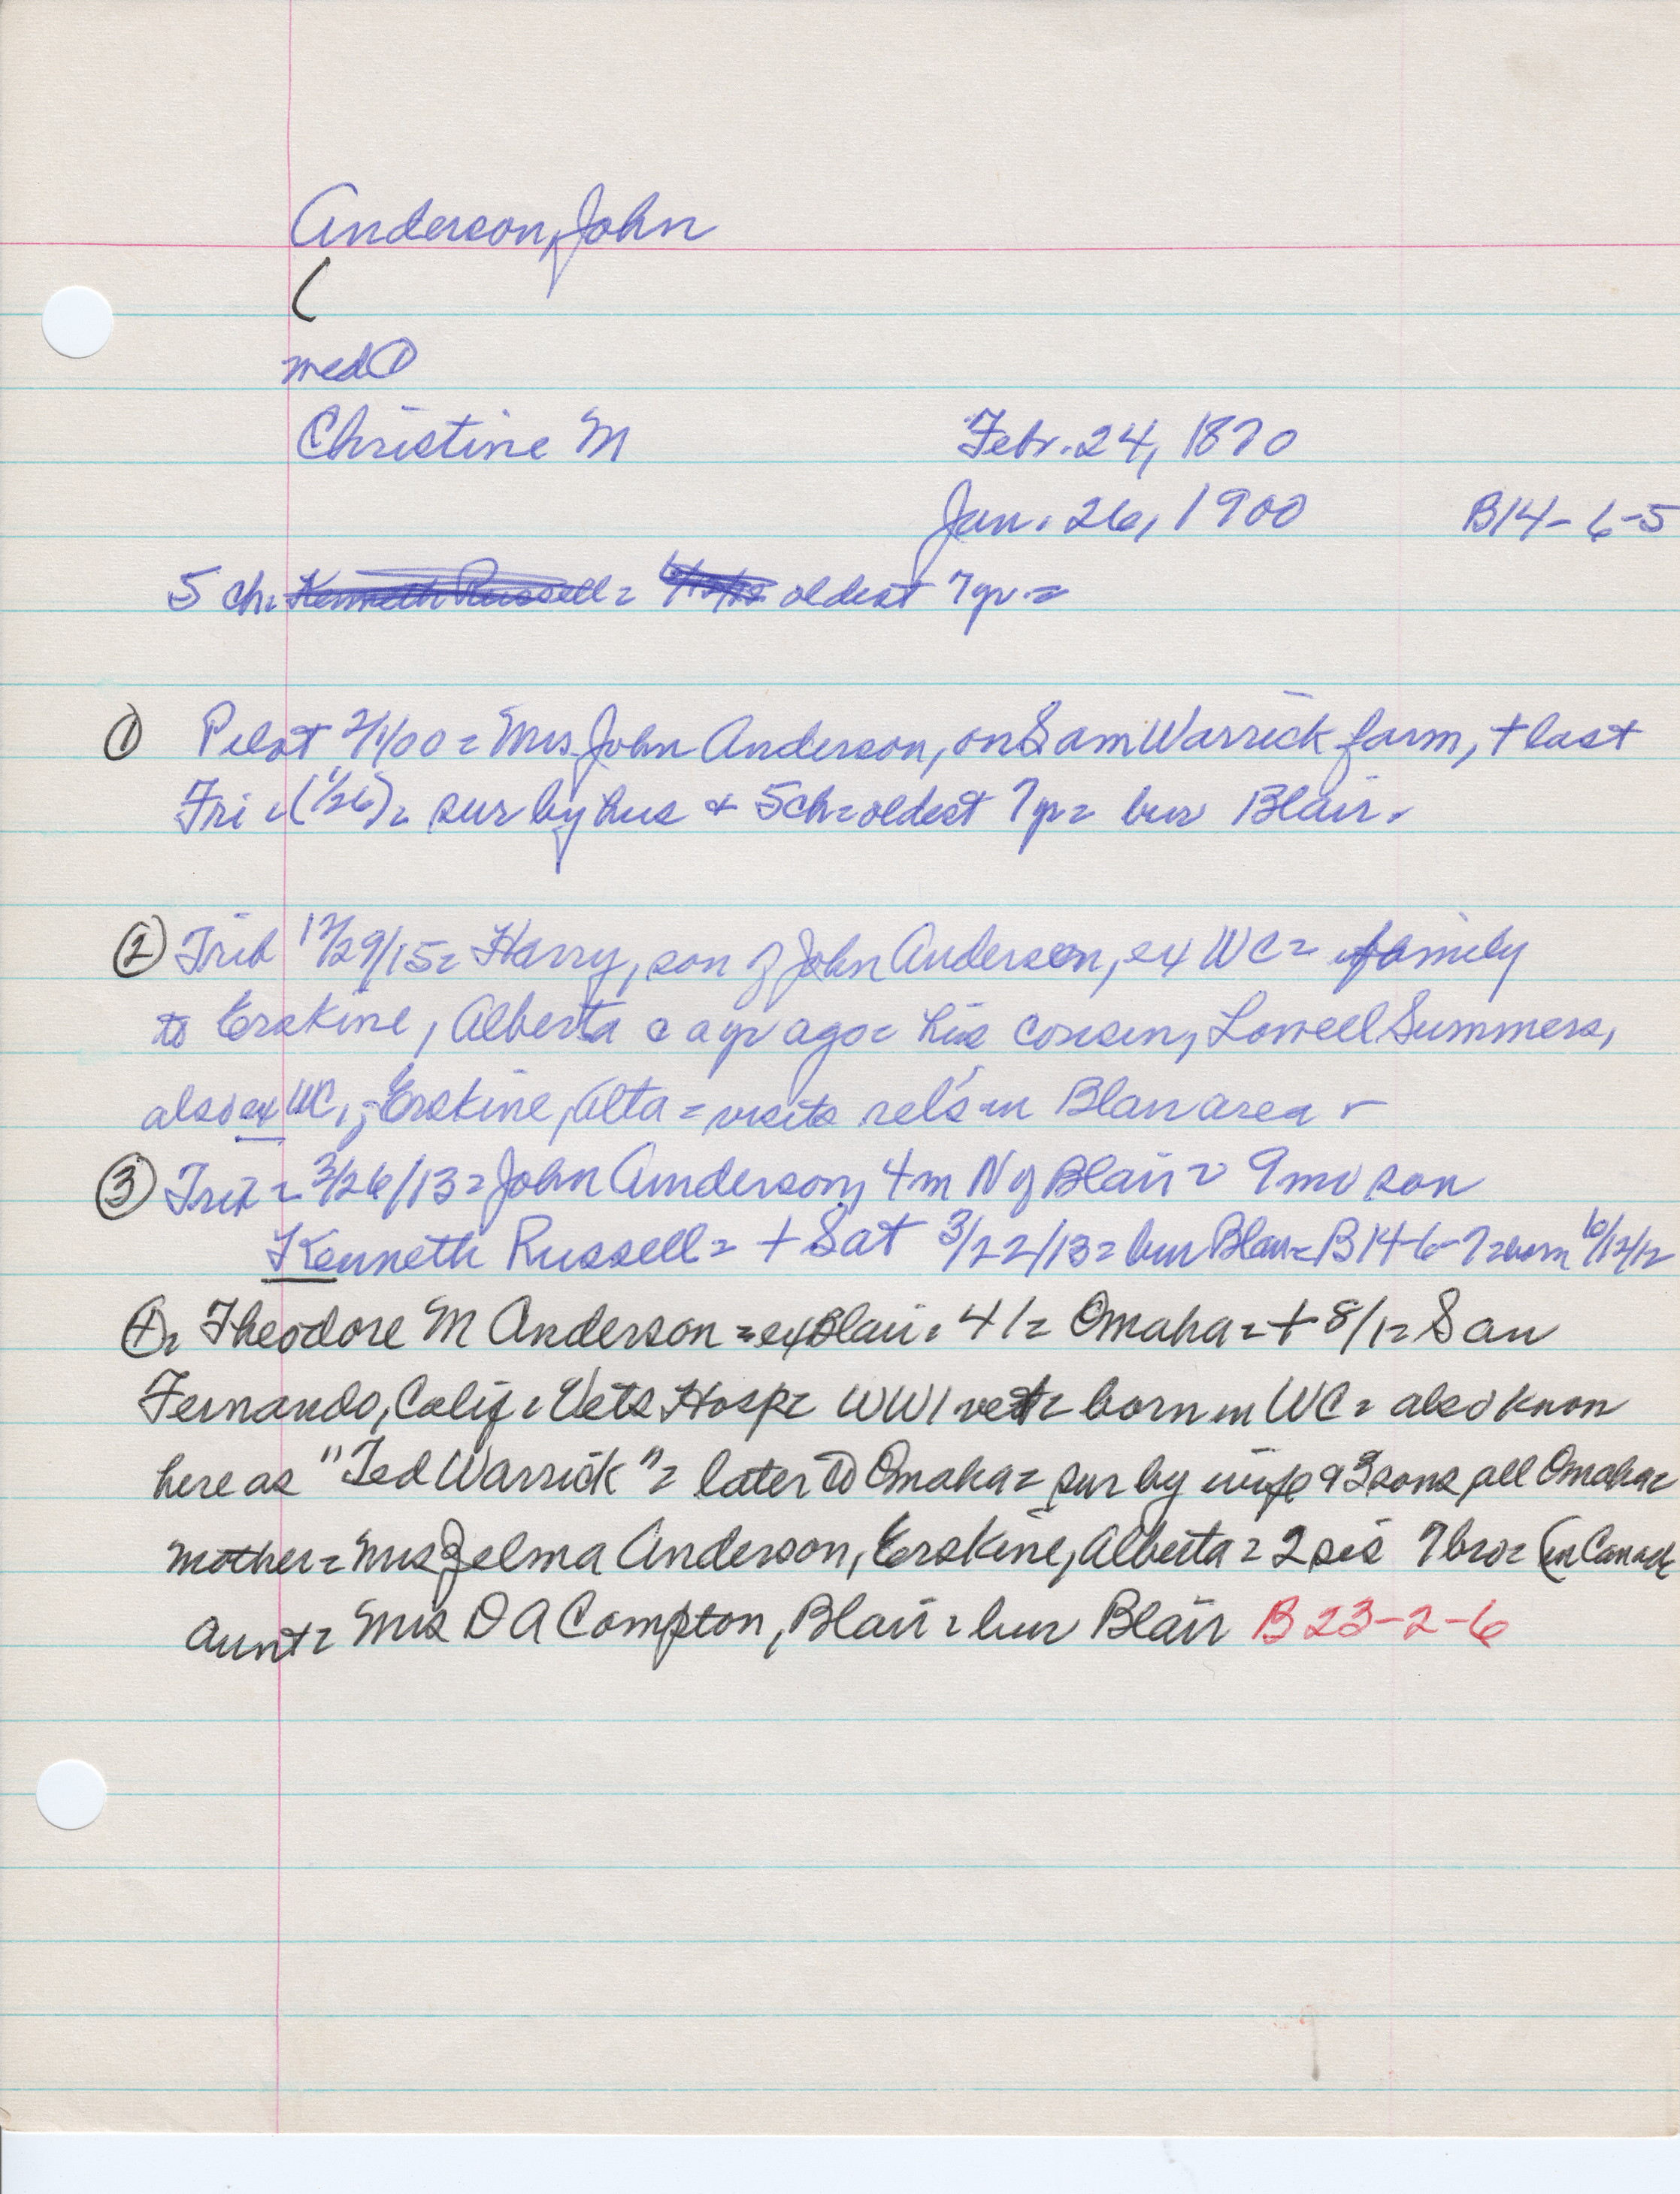 Anderson, John
(
med ①
Christine M Febr. 24, 1870
Jan. 26, 1900 B14-6-5
5 ch. Kenneth Russell = 6/12/12 oldest 7yr. =
① Pilot 2/1/00 = Mrs John Anderson, on Sam Warrick farm, + last
Fri = (1/26) = sur by hus & 5ch = oldest 7yr = bur Blair.
② Trib 12/29/15 = Harry, son of John Anderson, ex WC = family
to Erskine, Alberta a yr ago = his cousin, Lowell Summers,
also ex WC, Erskine, Alta = visits rel's in Blair area
③ Trib = 3/26/13 = John Anderson, 4m N of Blair = 9mo son
Kenneth Russell = + Sat 3/22/13 = bur Blair = B14-6-7 = born 6/12/12
④ = Theodore M Anderson = ex Blair = 41 = Omaha = + 8/1 = San
Fernando, Calif = Vets Hosp = WW1 vet = born in WC = also known
here as "Ted Warrick" = later to Omaha = sur by wife & 3 sons, all Omaha =
mother = Mrs Zelma Anderson, Erskine, Alberta = 2 sis 7 bro = (in Canada
aunt = Mrs D A Compton, Blair = bur Blair B 23-2-6